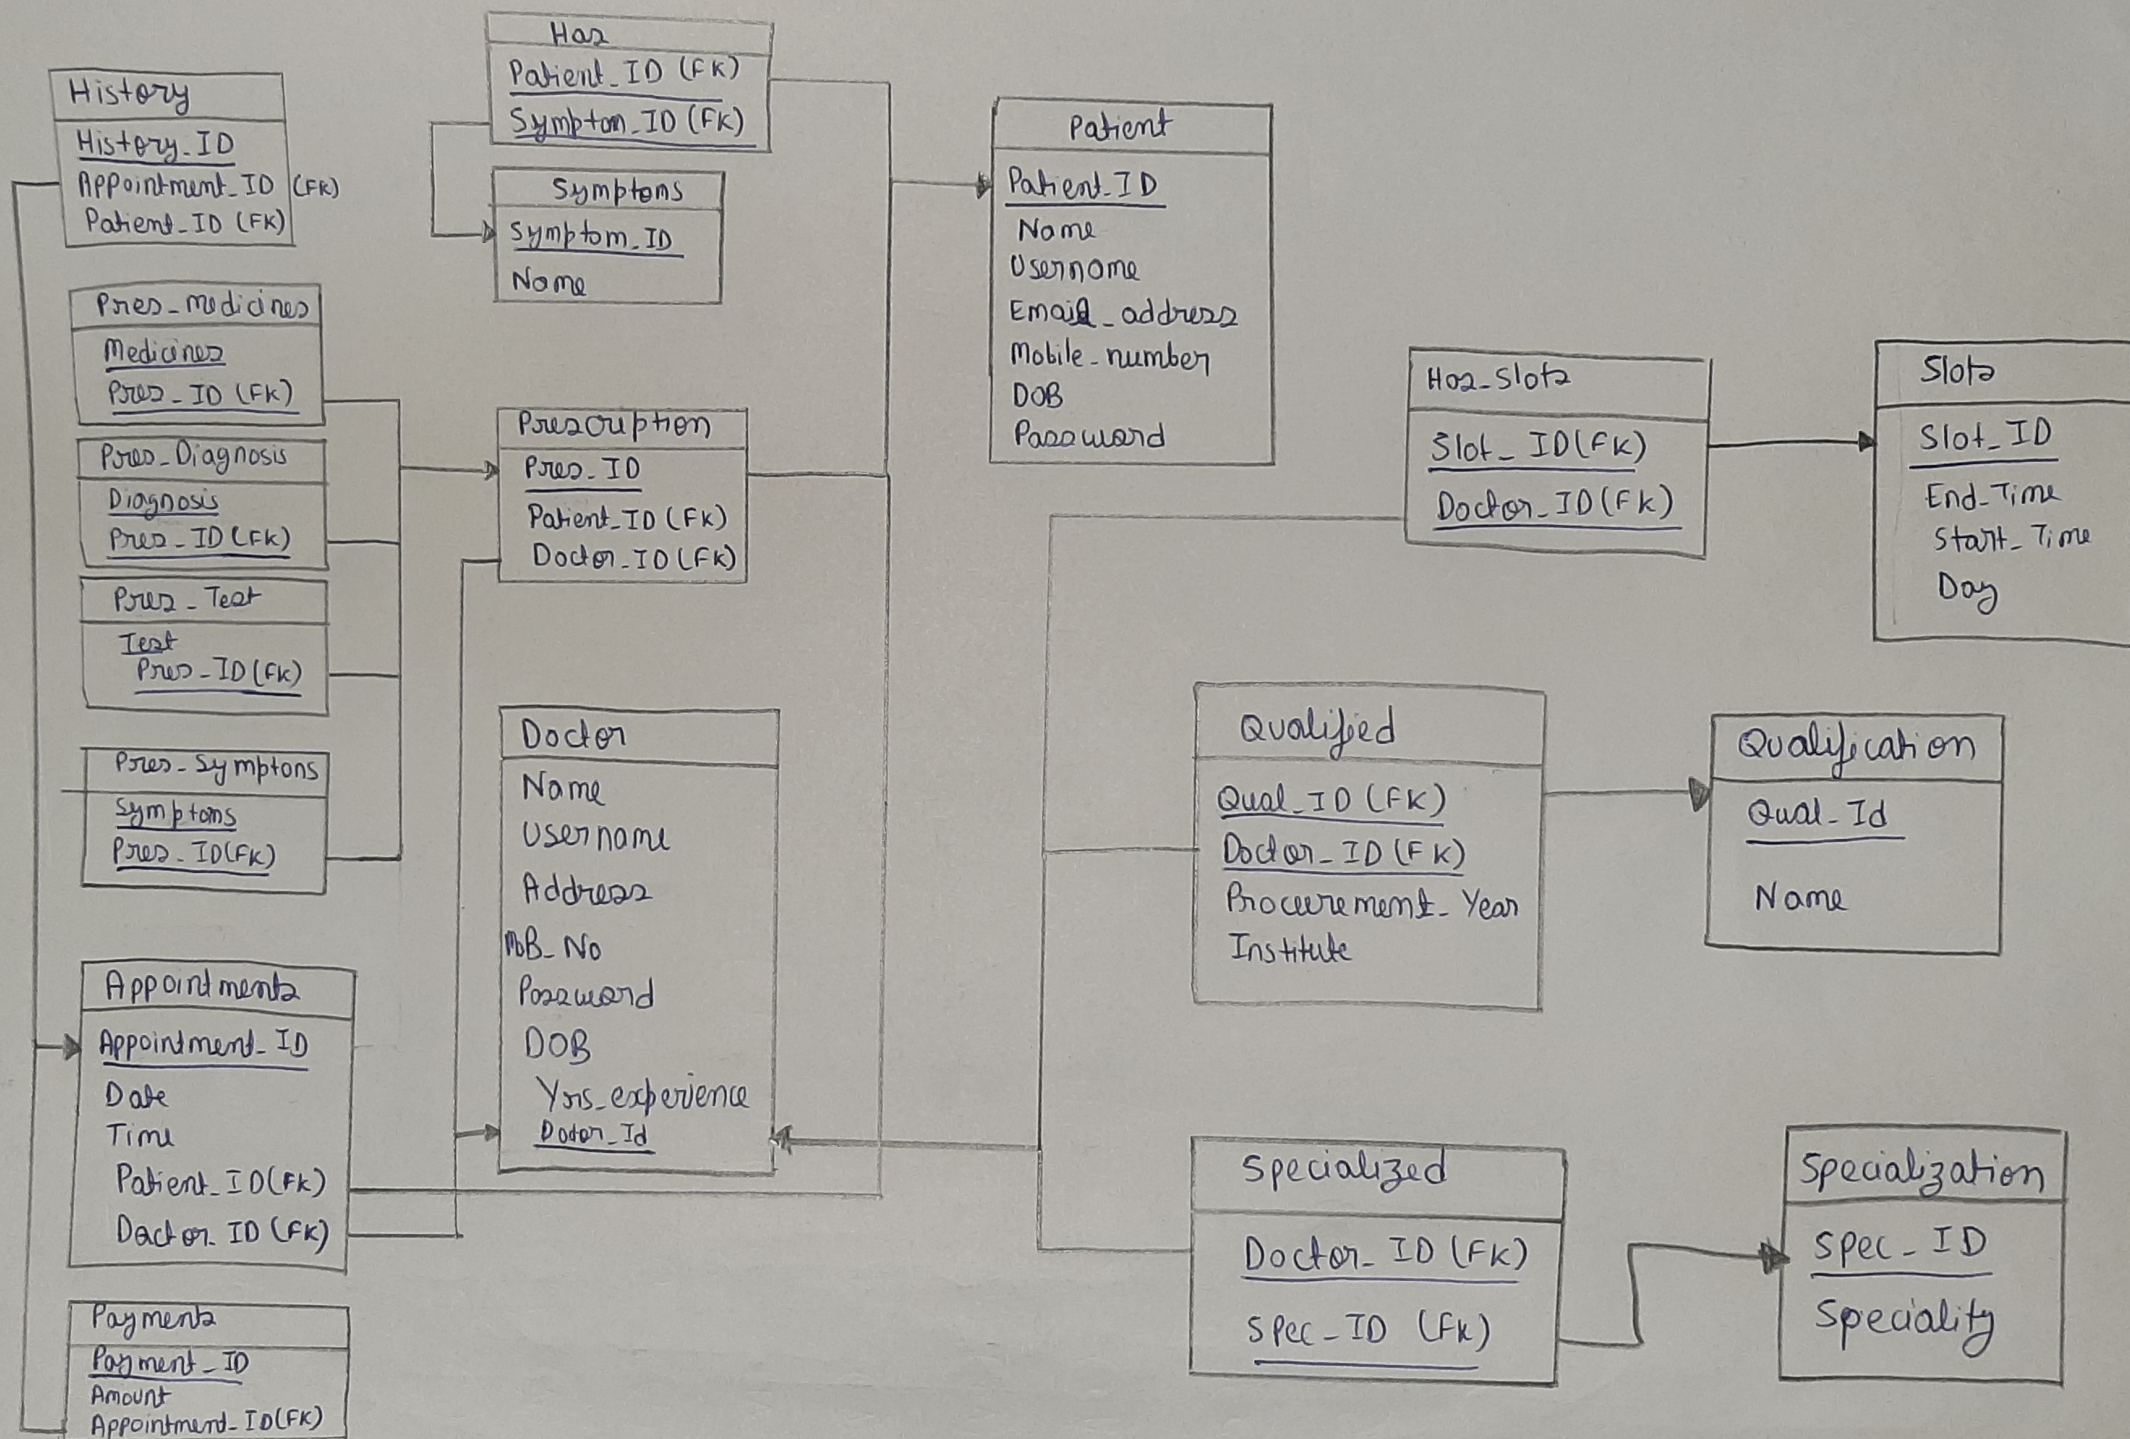 History
History_ID
Appointment_ID (FK)
Patient_ID (FK)
Pres_medicines
Medicines
Pres_ID (FK)
Pres_Diagnosis
Diagnosis
Pres_ID (FK)
Pres_Test
Test
Pres_ID (FK)
Pres_Symptons
Symptoms
Pres_ID (FK)
Appointments
Appointment_ID
Date
Time
Patient_ID (FK)
Doctor_ID (FK)
Payments
Payment_ID
Amount
Appointment_ID (FK)
Has
Patient_ID (FK)
Symptom_ID (FK)
Symptoms
Symptom_ID
Name
Prescription
Pres_ID
Patient_ID (FK)
Doctor_ID (FK)
Doctor
Name
Username
Address
MoB_No
Password
DOB
Yrs_experience
Doctor_Id
Patient
Patient_ID
Name
Username
Email_address
Mobile_number
DOB
Password
Has_Slots
Slot_ID (FK)
Doctor_ID (FK)
Slots
Slot_ID
End_Time
Start_Time
Day
Qualified
Qual_ID (FK)
Doctor_ID (FK)
Procurement_Year
Institute
Qualification
Qual_Id
Name
Specialized
Doctor_ID (FK)
Spec_ID (FK)
Specialization
Spec_ID
Speciality